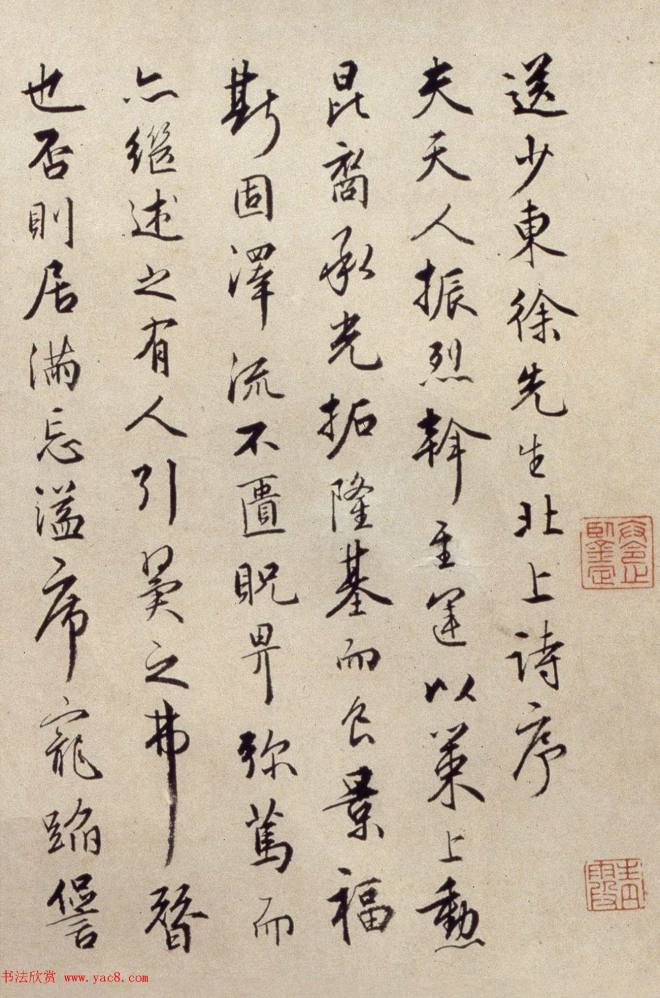 送少東徐先生北上詩序
夫天人振烈幹至運以策上勳
昆裔承光拓隆基而食景福
斯固澤流不匱貺畀彌篤而
亦繼述之有人引翼之弗替
也否則居滿忘溢席寵蹈愆
书法欣赏 www.yac8.com